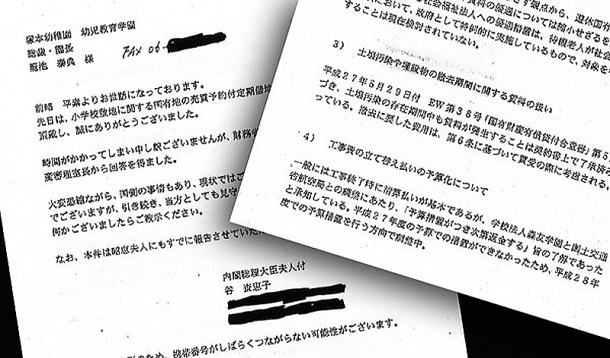 塚本幼稚園 幼児教育学園
総裁・園長
籠池 泰典 様
FAX 06-
前略 平素よりお世話になっております。
先日は、小学校敷地に関する国有地の売買予約付定期借地
頂戴し、誠にありがとうございました。
時間がかかってしまい申し訳ございませんが、財務省
産審理室長から回答を得ました。
大変恐縮ながら、国側の事情もあり、現状では
でございますが、引き続き、当方としても見守
何かございましたらご教示ください。
なお、本件は昭恵夫人にもすでに報告させていた
内閣総理大臣夫人付
谷 査恵子
のため、携帯番号がしばらくつながらない可能性がございます。
することは現在検討されていない。
3) 土壌汚染や埋設物の撤去期間に関する賃料の扱い
平成27年5月29日付 EW第38号「国有財産有償貸付合意書」第5
づき、土壌汚染の存在期間中も賃料が発生することは契約書上で了承済み
っている。撤去に要した費用は、第6条に基づいて買受の際に考慮される
4) 工事費の立て替え払いの予算化について
一般には工事終了時に清算払いが基本であるが、学校法人森友学園と国土交通
省航空局との調整にあたり、「予算措置がつき次第返金する」旨の了解であった
と承知している。平成27年度の予算での措置ができなかったため、平成28年
度での予算措置を行う方向で調整中。